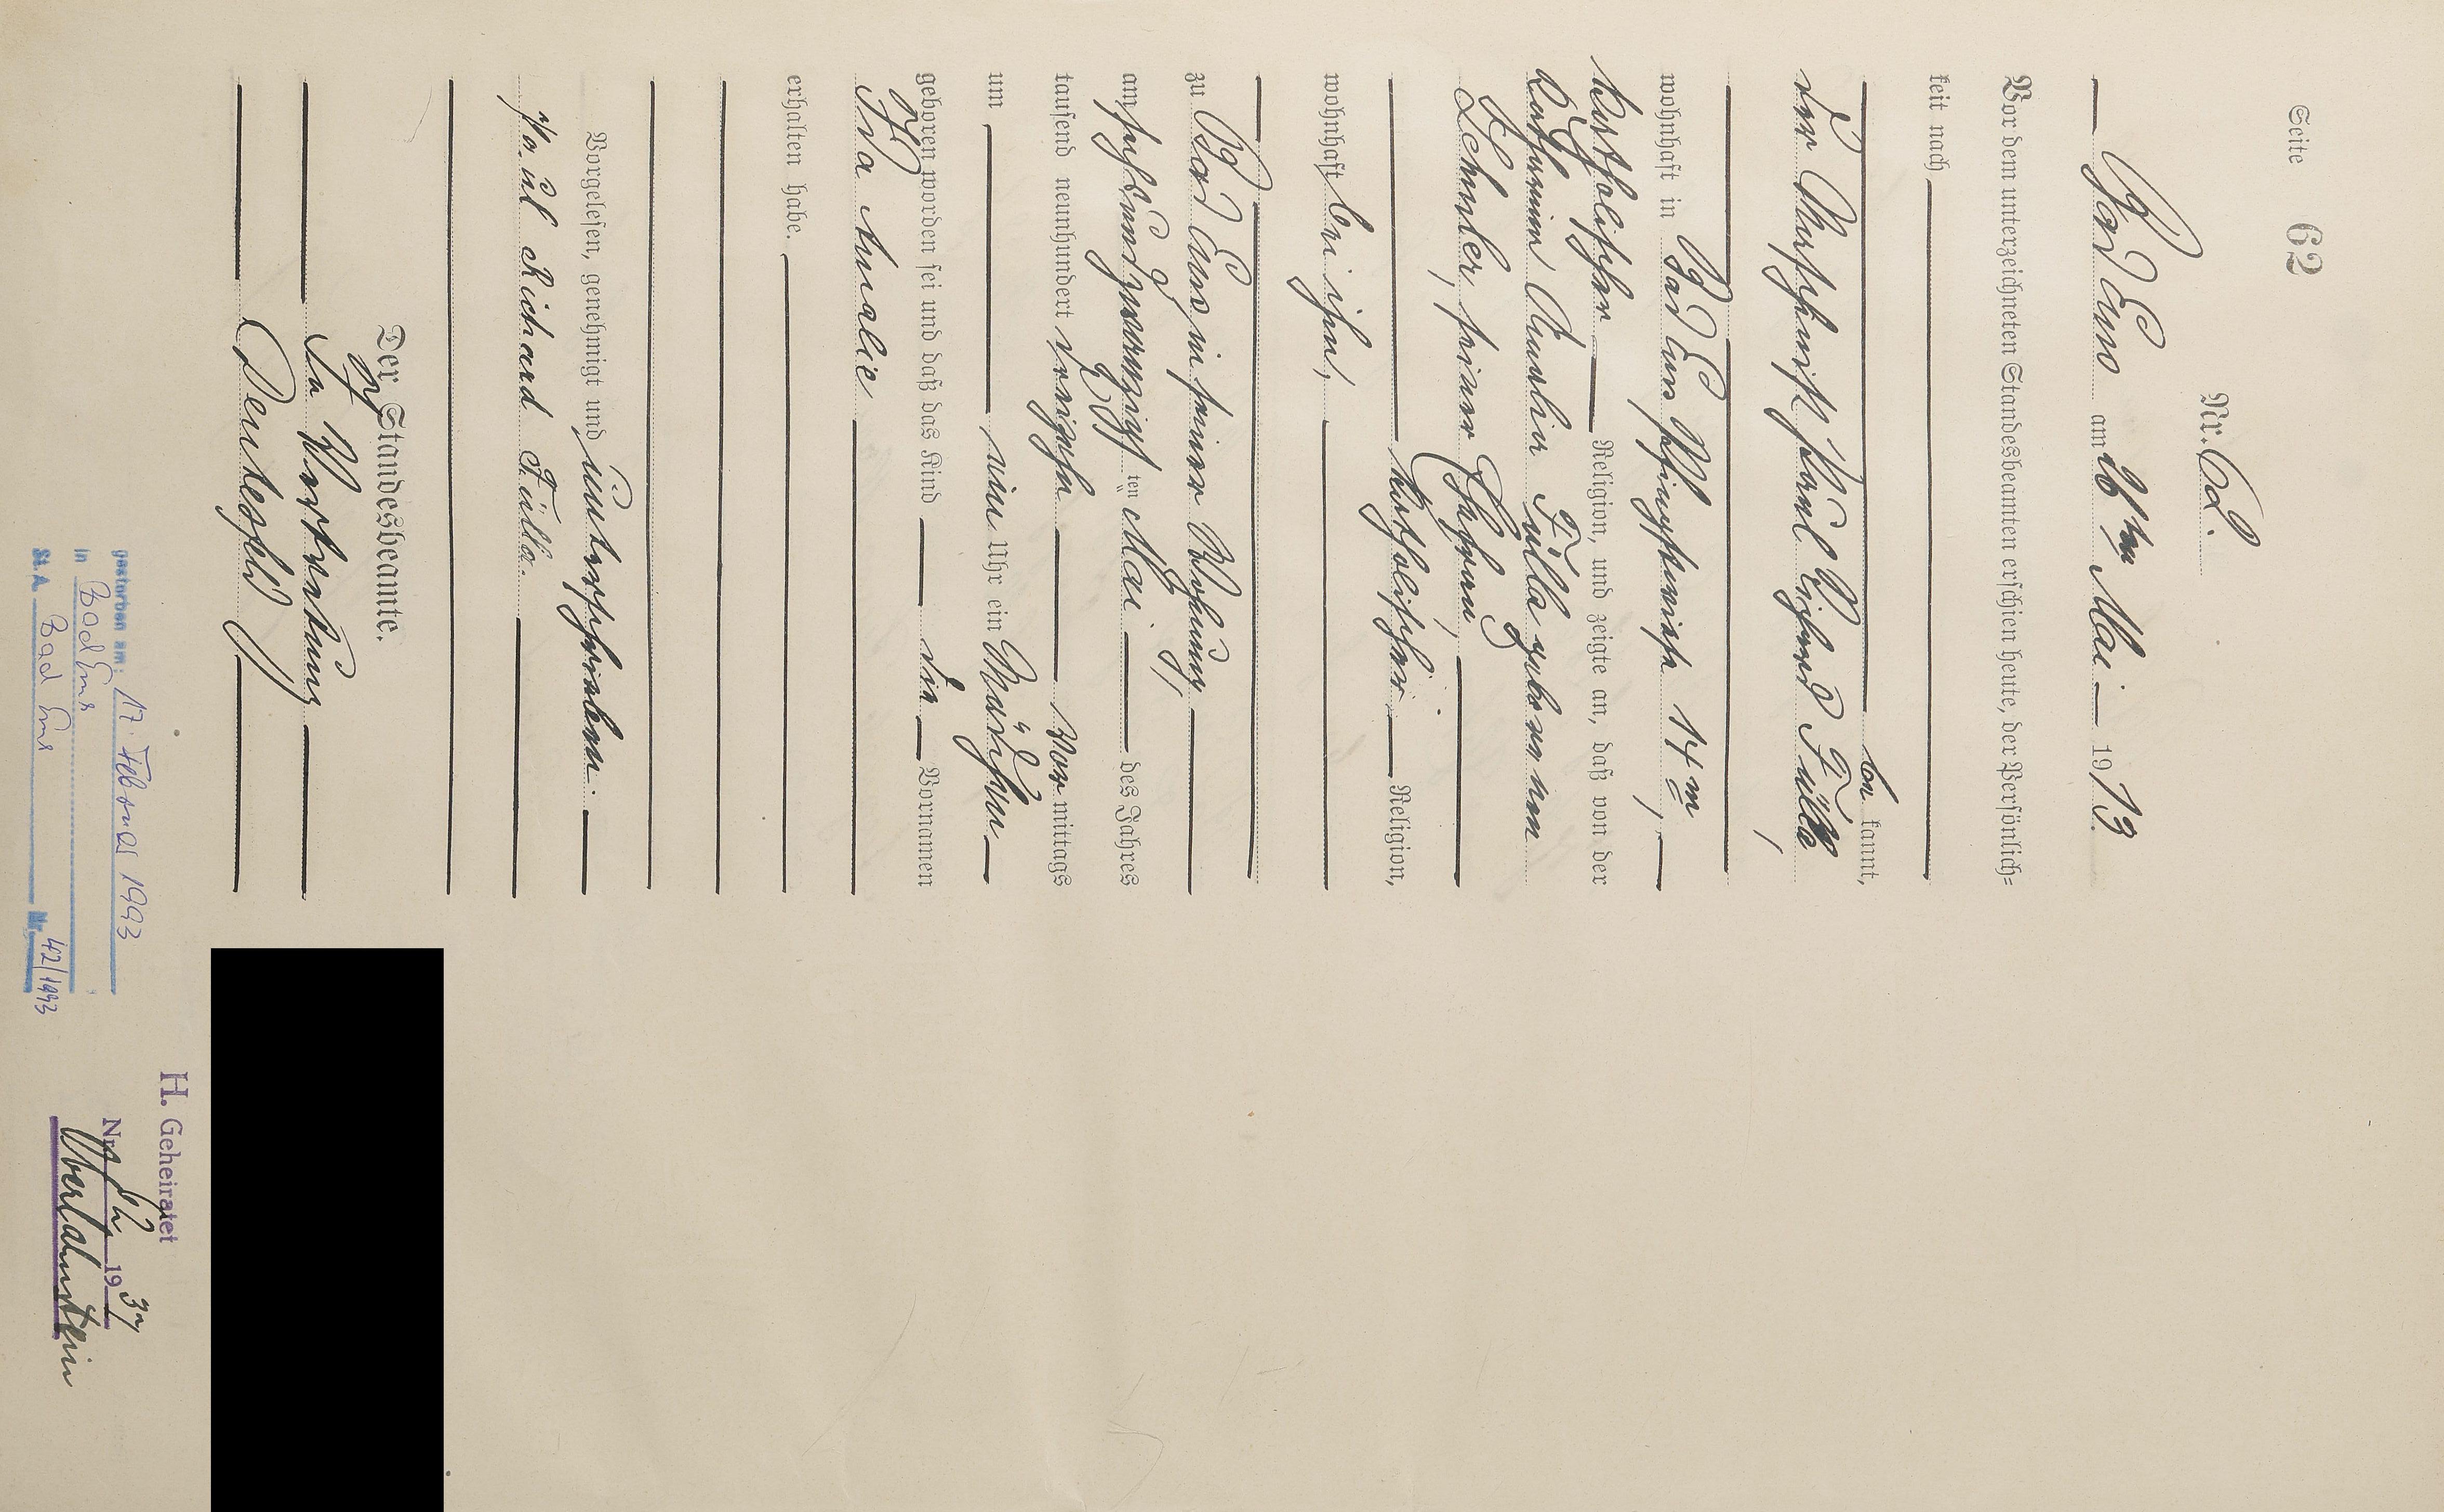 Seite 62
Nr. 62.
Bad Ems am 26ten Mai 1913.
Vor dem unterzeichneten Standesbeamten erschien heute, der Persönlich=
keit nach
be kannt,
der Maschinist Paul Richard Fülle,
wohnhaft in Bad Ems Pfingstwiese 14m,
katholischer Religion, und zeigte an, daß von der
Katharina Amalia Fülla geborenen
Schuler, seiner Ehefrau,
katholischer Religion,
wohnhaft bei ihm,
zu Bad Ems in seiner Wohnung,
am sechsundzwanzigsten Mai des Jahres
tausend neunhundert dreizehn Vor mittags
um ein Uhr ein Mädchen
geboren worden sei und daß das Kind die Vornamen
Ida Amalie
erhalten habe.
Vorgelesen, genehmigt und unterschrieben.
Paul Richard Fülla.
Der Standesbeamte.
In Vertretung
gestorben am: 17. Februar 1993
in Bad Ems
St. A. Bad Ems Nr. 42/1993
H. Geheiratet
Nr. 1937
Oberlahnstein